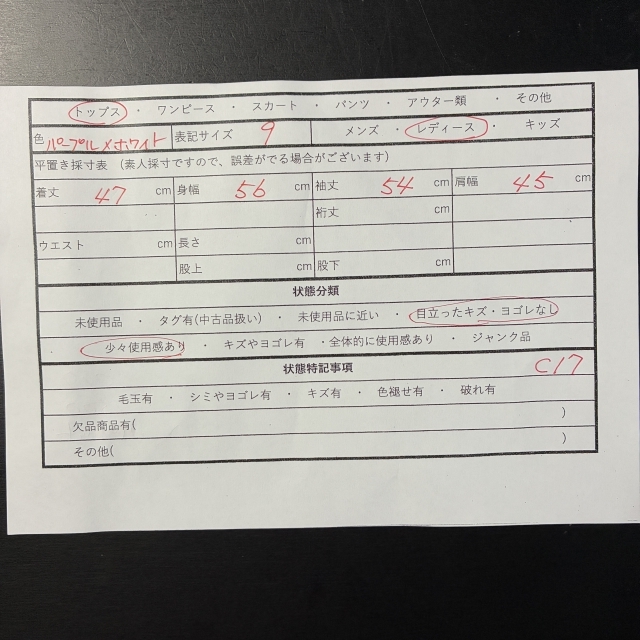 トップス ・ ワンピース ・ スカート ・ パンツ ・ アウター類 ・ その他
色 パープル×ホワイト 表記サイズ 9 メンズ ・ レディース ・ キッズ
平置き採寸表 （素人採寸ですので、誤差がでる場合がございます）
着丈 47 cm 身幅 56 cm 袖丈 54 cm 肩幅 45 cm
裄丈 cm
ウエスト cm 長さ cm cm
股上 cm 股下 cm
状態分類
未使用品 ・ タグ有(中古品扱い) ・ 未使用品に近い ・ 目立ったキズ・ヨゴレなし
少々使用感あり ・ キズやヨゴレ有 ・全体的に使用感あり ・ ジャンク品
状態特記事項 C17
毛玉有 ・ シミやヨゴレ有 ・ キズ有 ・ 色褪せ有 ・ 破れ有
欠品商品有( )
その他( )